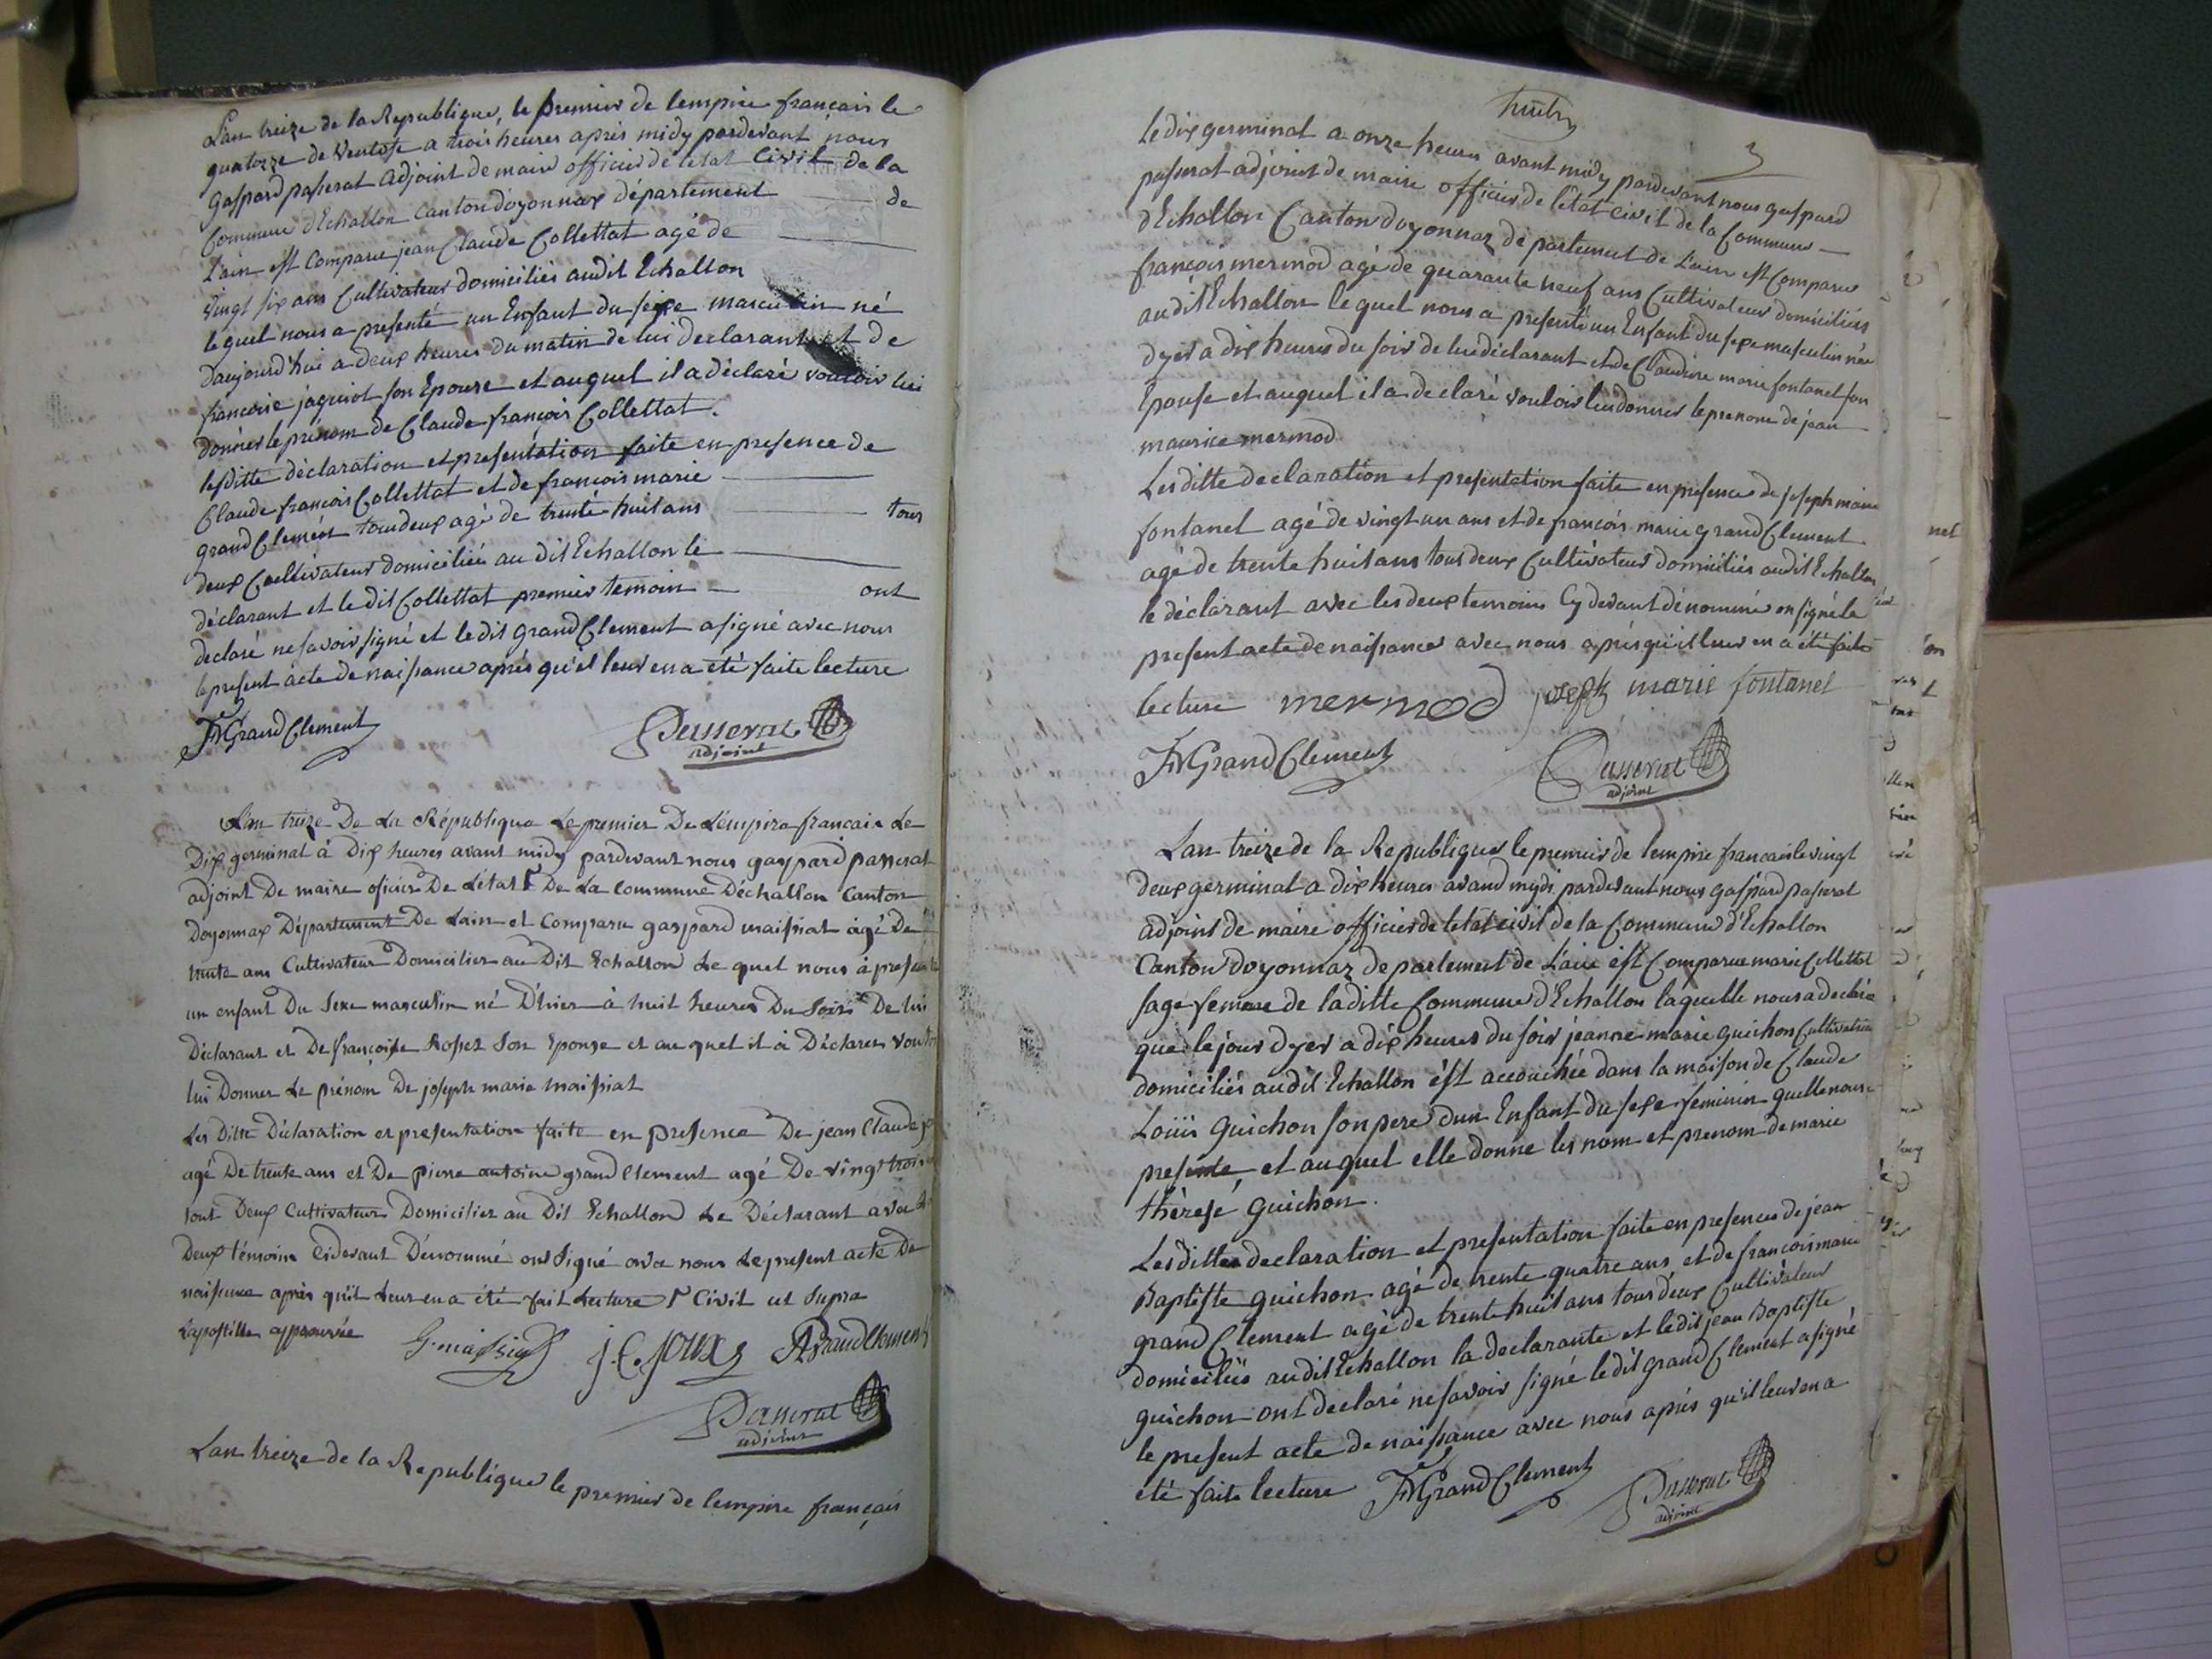 L'an treize de la Republique, le premier de lempire français le
quatorze de Ventose a trois heures après midy pardevant nous
gaspard passerat adjoint de maire officier de letat Civil de la
Commune dEchallon Canton doyonnax département de
Lain est Comparu jean Claude Collettat agé de
vingt six ans Cultivateur domiciliés audit Echallon
lequel nous a presenté un Enfant du sexe masculin né
daujourd'hui a deux heures du matin de lui declarant et de
francoise jaquiot son Epouse et auquel il a déclaré vouloir lui
donner le prénom de Claude françois Collettat.
lesditte déclaration et presentation faite en presence de
Claude françois Collettat et de francois marie
grand Clement tou deux agé de trente huit ans tous
deux Cultivateur domiciliés au dit Echallon le
déclarant et le dit Collettat premier temoin ont
declaré ne savoir signé et le dit grand Clement a signé avec nous
le present acte de naissance après qu'il leur en a été faite lecture
FMGrandClement Passerat
adjoint
L'an treize De La République Le premier De L'empire francais Le
Dix germinal à Dix heures avant midy pardevant nous gaspard passerat
adjoint De maire oficier De L'état De La Commune Déchallon Canton
Doyonnax Département De Lain et Comparu gaspard maissiat agé De
trente ans Cultivateur Domicilier au Dit Echallon Le quel nous à presenté
un enfant Du Sexe masculin né D'hier à huit heures Du Soir De lui
Déclarant et De françoise Rossez Son Epouse et au quel il à Déclarer vouloir
lui Donner Le prénom De joseph marie maissiat
Les Ditte Déclaration et presentation faite en presence De jean Claude
agé De trente ans et De pierre antoine grand Clement agé De vingt trois
tout Deux Cultivateur Domicilier au Dit Echallon Le Déclarant avec
Deux témoins Cidevant Dénommé ont Signé avec nous Le present acte De
naissance après qu'il Leur en a été fait Lecture Civil ut Supra
Lapostille approuvée G. maissiat J. C. JOUX PAGrandClement
Passerat
adjoint
Lan treize de la Republique le premier de lempire français
huit
3
le dix germinal a onze heures avant midy pardevant nous gaspard
passerat adjoint de maire officier de létat civil de la Commune
dEchallon Canton doyonnax département de Lain est Comparu
françois mermod agé de quarante neuf ans Cultivateur domiciliés
au dit Echallon lequel nous a presenté un Enfant du sexe masculin née
dyer a dix heures du soir de lui déclarant et de Claudine marie fontanel son
Epouse et auquel il a declaré vouloir lui donner le prenom de jean
maurice mermod
Les ditte declaration et presentation faite en presence de joseph marie
fontanel agé de vingt un ans et de francois marie grand Clement
agé de trente huit ans tous deux Cultivateur domiciliés audit Echallon
le déclarant avec les deux temoins Cy devant dénommé on signé le
present acte de naissance avec nous après qu'il leur en a été faite
lecture mermod joseph marie fontanel
FMGrandClement Passerat
adjoint
Lan treize de la Republique le premier de lempire francais le vingt
deux germinal a dix heures avand mydi pardevant nous gaspard passerat
adjoint de maire officier de letat civil de la Commune d'Echallon
Canton doyonnax departement de L'ain est Comparue marie Collettat
sage femme de laditte Commune d'Echallon laquelle nous a declaré
que le jour dyer a dix heures du soir jeanne marie guichon Cultivatrice
domiciliés audit Echallon est accouchée dans la maison de Claude
Loüis Guichon son pere dun Enfant du sexe féminin quelle nous
presente, et auquel elle donne les nom et prenom de marie
thèrese guichon.
Les dittes declaration et presentation faite en presence de jean
Baptiste guichon agé de trente quatre ans et de francois marie
grand Clement agé de trente huit ans tous deux Cultivateur
domiciliés audit Echallon la declarante et ledit jean Baptiste
guichon ont declaré ne savoir signé ledit grand Clement a signé
le present acte de naissance avec nous après qu'il leur en a
été faite lecture FMGrandClement Passerat
adjoint